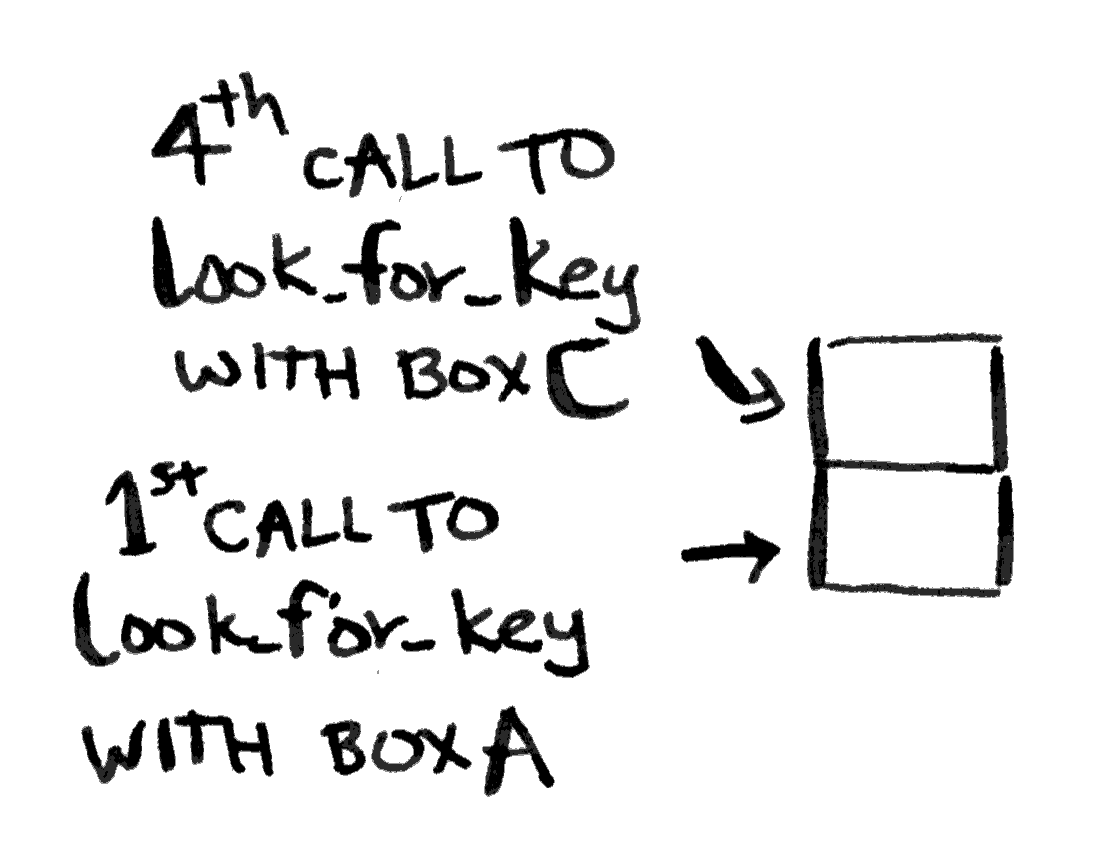 4th CALL TO
look_for_key
WITH BOX C
1st CALL TO
look_for_key
WITH BOX A